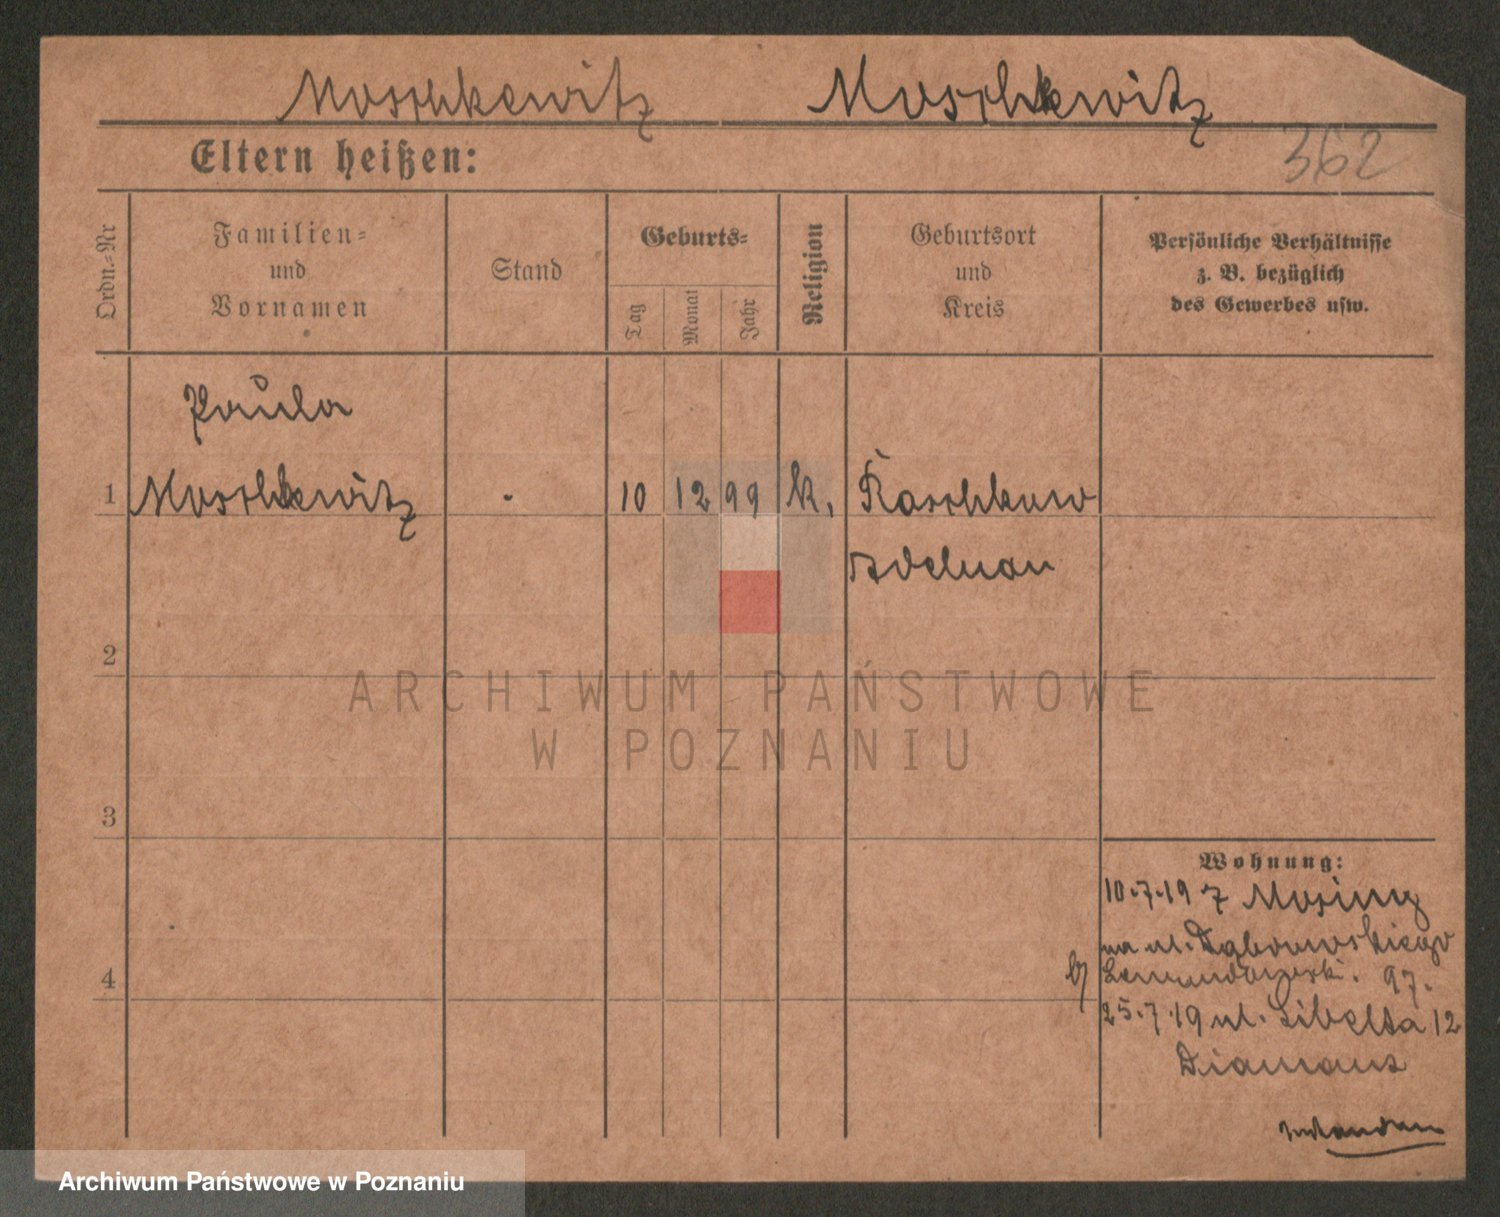 Moschkewitz Moschkewitz
Eltern heißen:
362
Ordn.-Nr
Familien-
und
Vornamen
Stand
Geburts-
Tag
Monat
Jahr
Religion
Geburtsort
und
Kreis
Persönliche Verhältnisse
z. B. bezüglich
des Gewerbes usw.
Paula
1 Moschkewitz . 10 12 99 k. Raschkow
Adelnau
2
3
4
ARCHIWUM PAŃSTWOWE
W POZNANIU
Wohnung:
10.7.19 z Mosiny
na ul. Dąbrowskiego
b/ 97.
25.7.19 ul. Libelta 12
Diamant
Archiwum Państwowe w Poznaniu